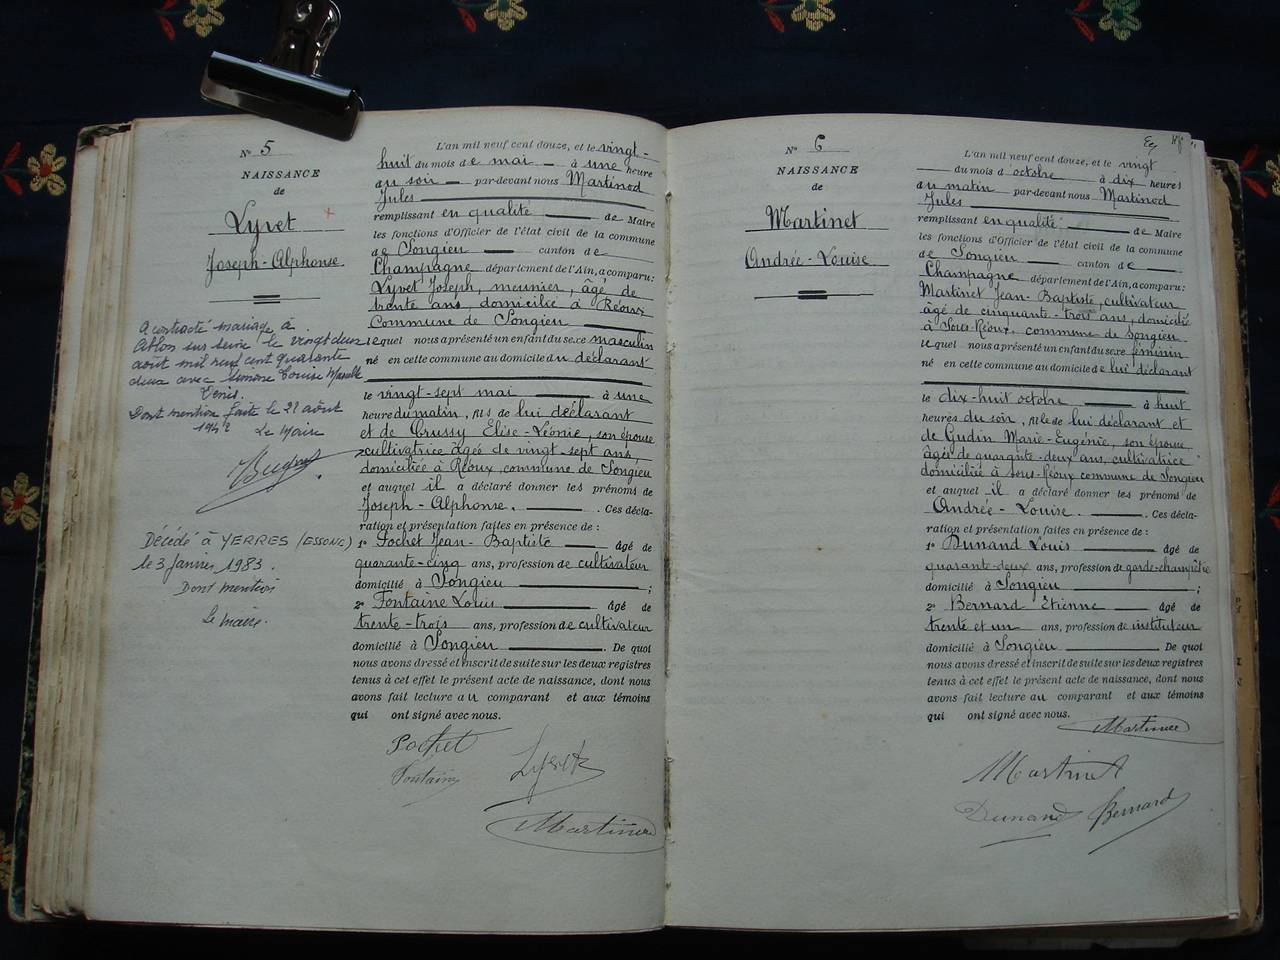 N° 5
NAISSANCE
de
Lyvet
Joseph-Alphonse
A contracté mariage à
Ablon sur Seine le vingt deux
août mil neuf cent quarante
deux avec Simone Louise
Dont mention faite le 21 août
1942 Le Maire
Décédé à YERRES (ESSONE)
le 3 janvier 1983.
Dont mention
Le maire.
L'an mil neuf cent douze, et le vingt-
huit du mois de mai à une heure
au soir par-devant nous Martinod
Jules
remplissant en qualité de Maire
les fonctions d'Officier de l'état civil de la commune
de Songieu canton de
Champagne département de l'Ain, a comparu :
Lyvet Joseph, meunier, âgé de
trente ans, domicilié à Réoux
Commune de Songieu
lequel nous a présenté un enfant du sexe masculin
né en cette commune au domicile du déclarant
le vingt-sept mai à une
heure du matin, fils de lui déclarant
et de Crussy Elise-Léonie, son épouse
cultivatrice âgée de vingt sept ans,
domiciliée à Réoux, commune de Songieu
et auquel il a déclaré donner les prénoms de
Joseph-Alphonse. Ces décla-
ration et présentation faites en présence de :
1° Pochet Jean-Baptiste âgé de
quarante-cinq ans, profession de cultivateur
domicilié à Songieu ;
2° Fontaine Louis âgé de
trente-trois ans, profession de cultivateur
domicilié à Songieu. De quoi
nous avons dressé et inscrit de suite sur les deux registres
tenus à cet effet le présent acte de naissance, dont nous
avons fait lecture au comparant et aux témoins
qui ont signé avec nous.
Pochet Lyvet
Fontaine
N° 6
NAISSANCE
de
Martinet
Andrée-Louise
L'an mil neuf cent douze, et le vingt
du mois d'octobre à dix heures
du matin par-devant nous Martinod
Jules
remplissant en qualité de Maire
les fonctions d'Officier de l'état civil de la commune
de Songieu canton de
Champagne département de l'Ain, a comparu :
Martinet Jean-Baptiste, cultivateur
âgé de cinquante-trois ans, domicilié
à Sous-Réoux, commune de Songieu
lequel nous a présenté un enfant du sexe féminin
né en cette commune au domicile de lui déclarant
le dix-huit octobre à huit
heures du soir, fille de lui déclarant et
de Gudin Marie-Eugénie, son épouse
âgée de quarante-deux ans, cultivatrice
domiciliée à sous-Réoux commune de Songieu
et auquel il a déclaré donner les prénoms de
Andrée-Louise. Ces décla-
ration et présentation faites en présence de :
1° Dunand Louis âgé de
quarante-deux ans, profession de garde-champêtre
domicilié à Songieu ;
2° Bernard Etienne âgé de
trente et un ans, profession de instituteur
domicilié à Songieu. De quoi
nous avons dressé et inscrit de suite sur les deux registres
tenus à cet effet le présent acte de naissance, dont nous
avons fait lecture au comparant et aux témoins
qui ont signé avec nous.
Martinet
Dunand Bernard